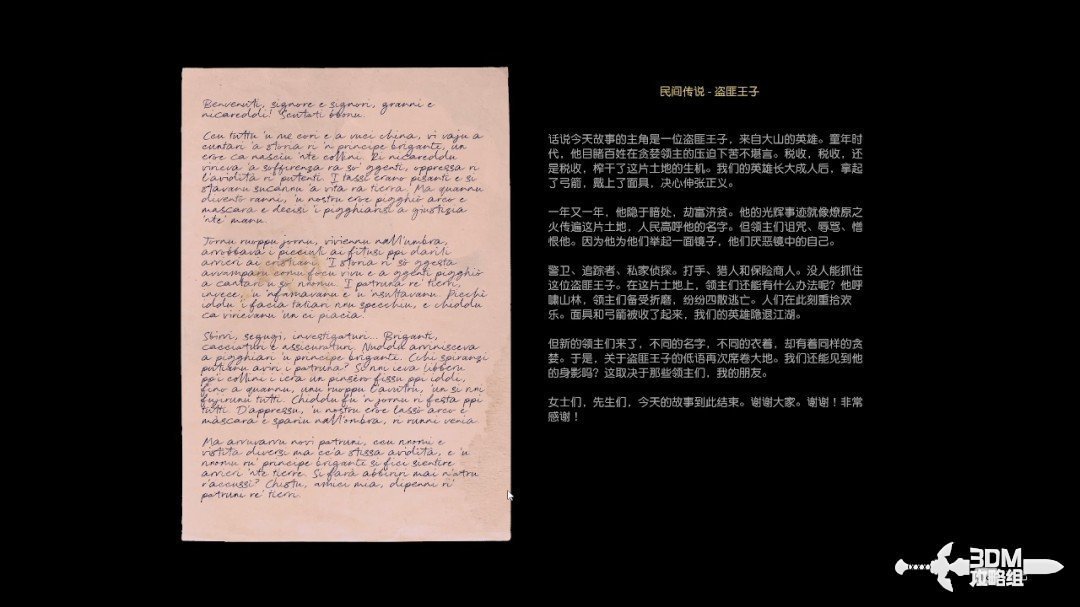 Benvenuti, signore e signori, granni e
nicareddi! Sentati bbonu.
Ccu tuttu 'u me cori e a vuci china, vi vaju a
cuntari 'a storia ri 'n principe brigante, un
eroe ca nasciu 'nte collini. Ri nicareddu
virieva 'a suffirenza ra so' ggenti, oppressa ri
l'avidità ri' putenti. I tassi erano pisanti e si
stavanu sucannu 'a vita ra tierra. Ma quannu
diventò ranni, 'u nostru eroe pigghiò arco e
mascara e decisi 'i pigghiarisi a giustizia
'nte' manu.
Jornu ruoppu jornu, viviennu nall'umbra,
arrobbava i picciuli ai fitusi ppi darili
arrieri ai cristiani. 'I storia ri so' ggesta
avvamparu comu focu vivu e a ggenti pigghiò
a cantari u so' nnomu. I patruna re' tierri,
invece, 'u 'nfamavanu e u 'nsultavanu. Picchì
iddu 'i facia taliari nnu specchiu, e chiddu
ca virievanu 'un ci piacia.
Sbirri, segugi, investigaturi... Briganti,
cacciaturi e assicuraturi. Nuddu arrinisceva
a pigghiari 'u principe briganti. Cchi spiranzi
putianu aviri i patruna? Si nni ieva libberu
ppi collini i iera un pinsèro fissu ppi iddi,
fino a quannu, unu ruoppu l'avutru, 'un si nni
fujirunu tutti. Chiddu fu 'n jornu ri festa ppi
tutti. D'appressu, 'u nostru eroe lassò arco e
mascara e spariu nall'ombra, ri runni venia.
Ma arruvarru novi patruni, ccu nnomi e
vistita diversi ma cc'a stissa avidità, e 'u
nnomu ru' principe briganti si fici sientire
arrieri 'nte tierre. Si farà abbiriri mai n'atru
r'accussì? Chistu, amici mia, dipenni ri'
patruni re' tierri.
民间传说 - 盗匪王子
话说今天故事的主角是一位盗匪王子，来自大山的英雄。童年时
代，他目睹百姓在贪婪领主的压迫下苦不堪言。税收，税收，还
是税收，榨干了这片土地的生机。我们的英雄长大成人后，拿起
了弓箭，戴上了面具，决心伸张正义。
一年又一年，他隐于暗处，劫富济贫。他的光辉事迹就像燎原之
火传遍这片土地，人民高呼他的名字。但领主们诅咒、辱骂、憎
恨他。因为他为他们举起一面镜子，他们厌恶镜中的自己。
警卫、追踪者、私家侦探。打手、猎人和保险商人。没人能抓住
这位盗匪王子。在这片土地上，领主们还能有什么办法呢？他呼
啸山林，领主们备受折磨，纷纷四散逃亡。人们在此刻重拾欢
乐。面具和弓箭被收了起来，我们的英雄隐退江湖。
但新的领主们来了，不同的名字，不同的衣着，却有着同样的贪
婪。于是，关于盗匪王子的低语再次席卷大地。我们还能见到他
的身影吗？这取决于那些领主们，我的朋友。
女士们，先生们，今天的故事到此结束。谢谢大家。谢谢！非常
感谢！
3DM
攻略组